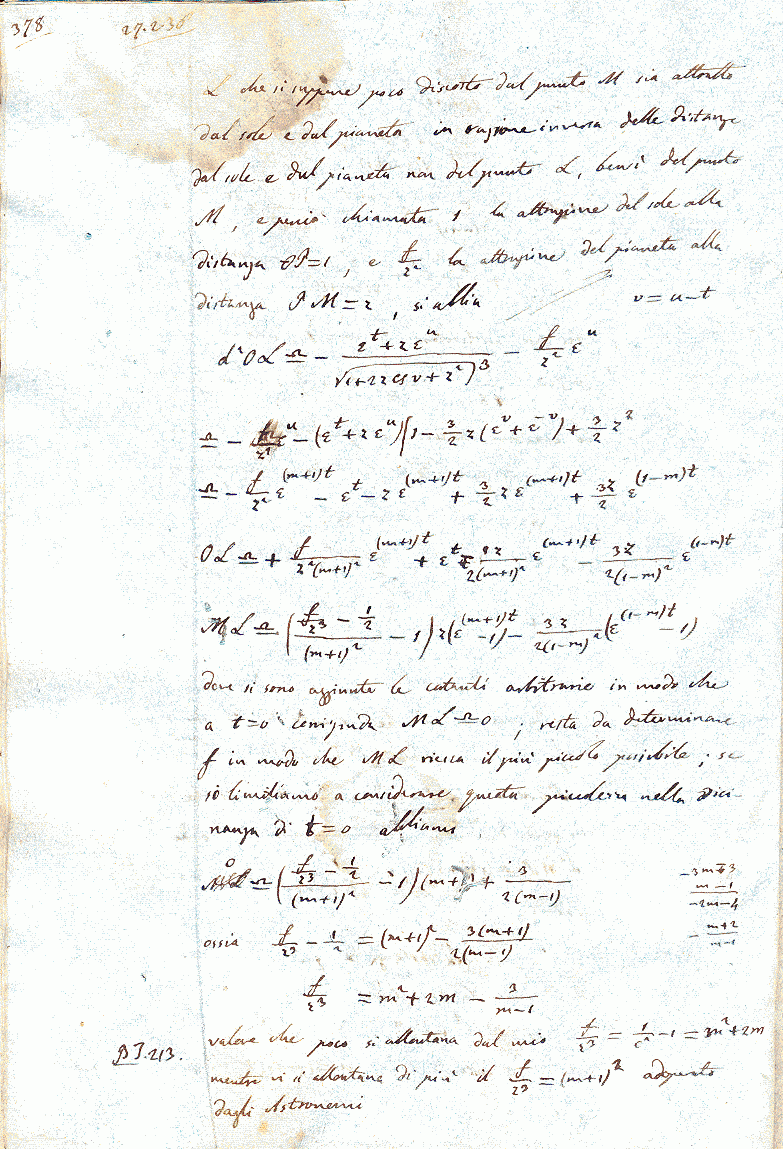 378 27.2.38
L che si suppone poco discosto dal punto M sia attratto
dal sole e dal pianeta in ragione inversa delle distanze
dal sole e dal pianeta non del punto L, bensì del punto
M, e perciò chiamata 1 la attrazione del sole alla
distanza OP=1, e f/z² la attrazione del pianeta alla
distanza PM=z, si abbia v=u-t
d²OL ≏ - (ε^t+zε^u)/√(1+2z csv+z²)³ - f/z² ε^u
≏ - f/z² ε^u - (ε^t+zε^u)(1 - 3/2 z(ε^v+ε^-v) + 3/2 z²
≏ - f/z² ε^(m+1)t - ε^t - zε^(m+1)t + 3/2 zε^(m+1)t + 3z/2 ε^(1-m)t
OL ≏ + f/z²(m+1)² ε^(m+1)t + ε^t z/2(m+1)² ε^(m+1)t - 3z/2(1-m)² ε^(1-m)t
ML ≏ ((f/z³ - 1/2)/(m+1)² - 1) z(ε^(m+1)t - 1) - 3z/2(1-m)² (ε^(1-m)t - 1)
dove si sono aggiunte le costanti arbitrarie in modo che
a t=0 corrisponda ML≏0; resta da determinare
f in modo che ML riesca il più piccolo possibile; se
ci limitiamo a considerare questa piccolezza nella vici-
nanza di t=0 abbiamo
0 ≏ ((f/z³ - 1/2)/(m+1)² - 1)(m+1) + 3/2(m-1)
-3m+3
m-1
-2m-4
ossia f/z³ - 1/2 = (m+1)² - 3(m+1)/2(m-1)
- m+2/m-1
f/z³ = m²+2m - 3/m-1
valore che poco si allontana dal mio f/z³ = 1/c² - 1 = 3m²+2m
213.
mentre vi si allontana di più il f/z³ = (m+1)² adoprato
dagli Astronomi